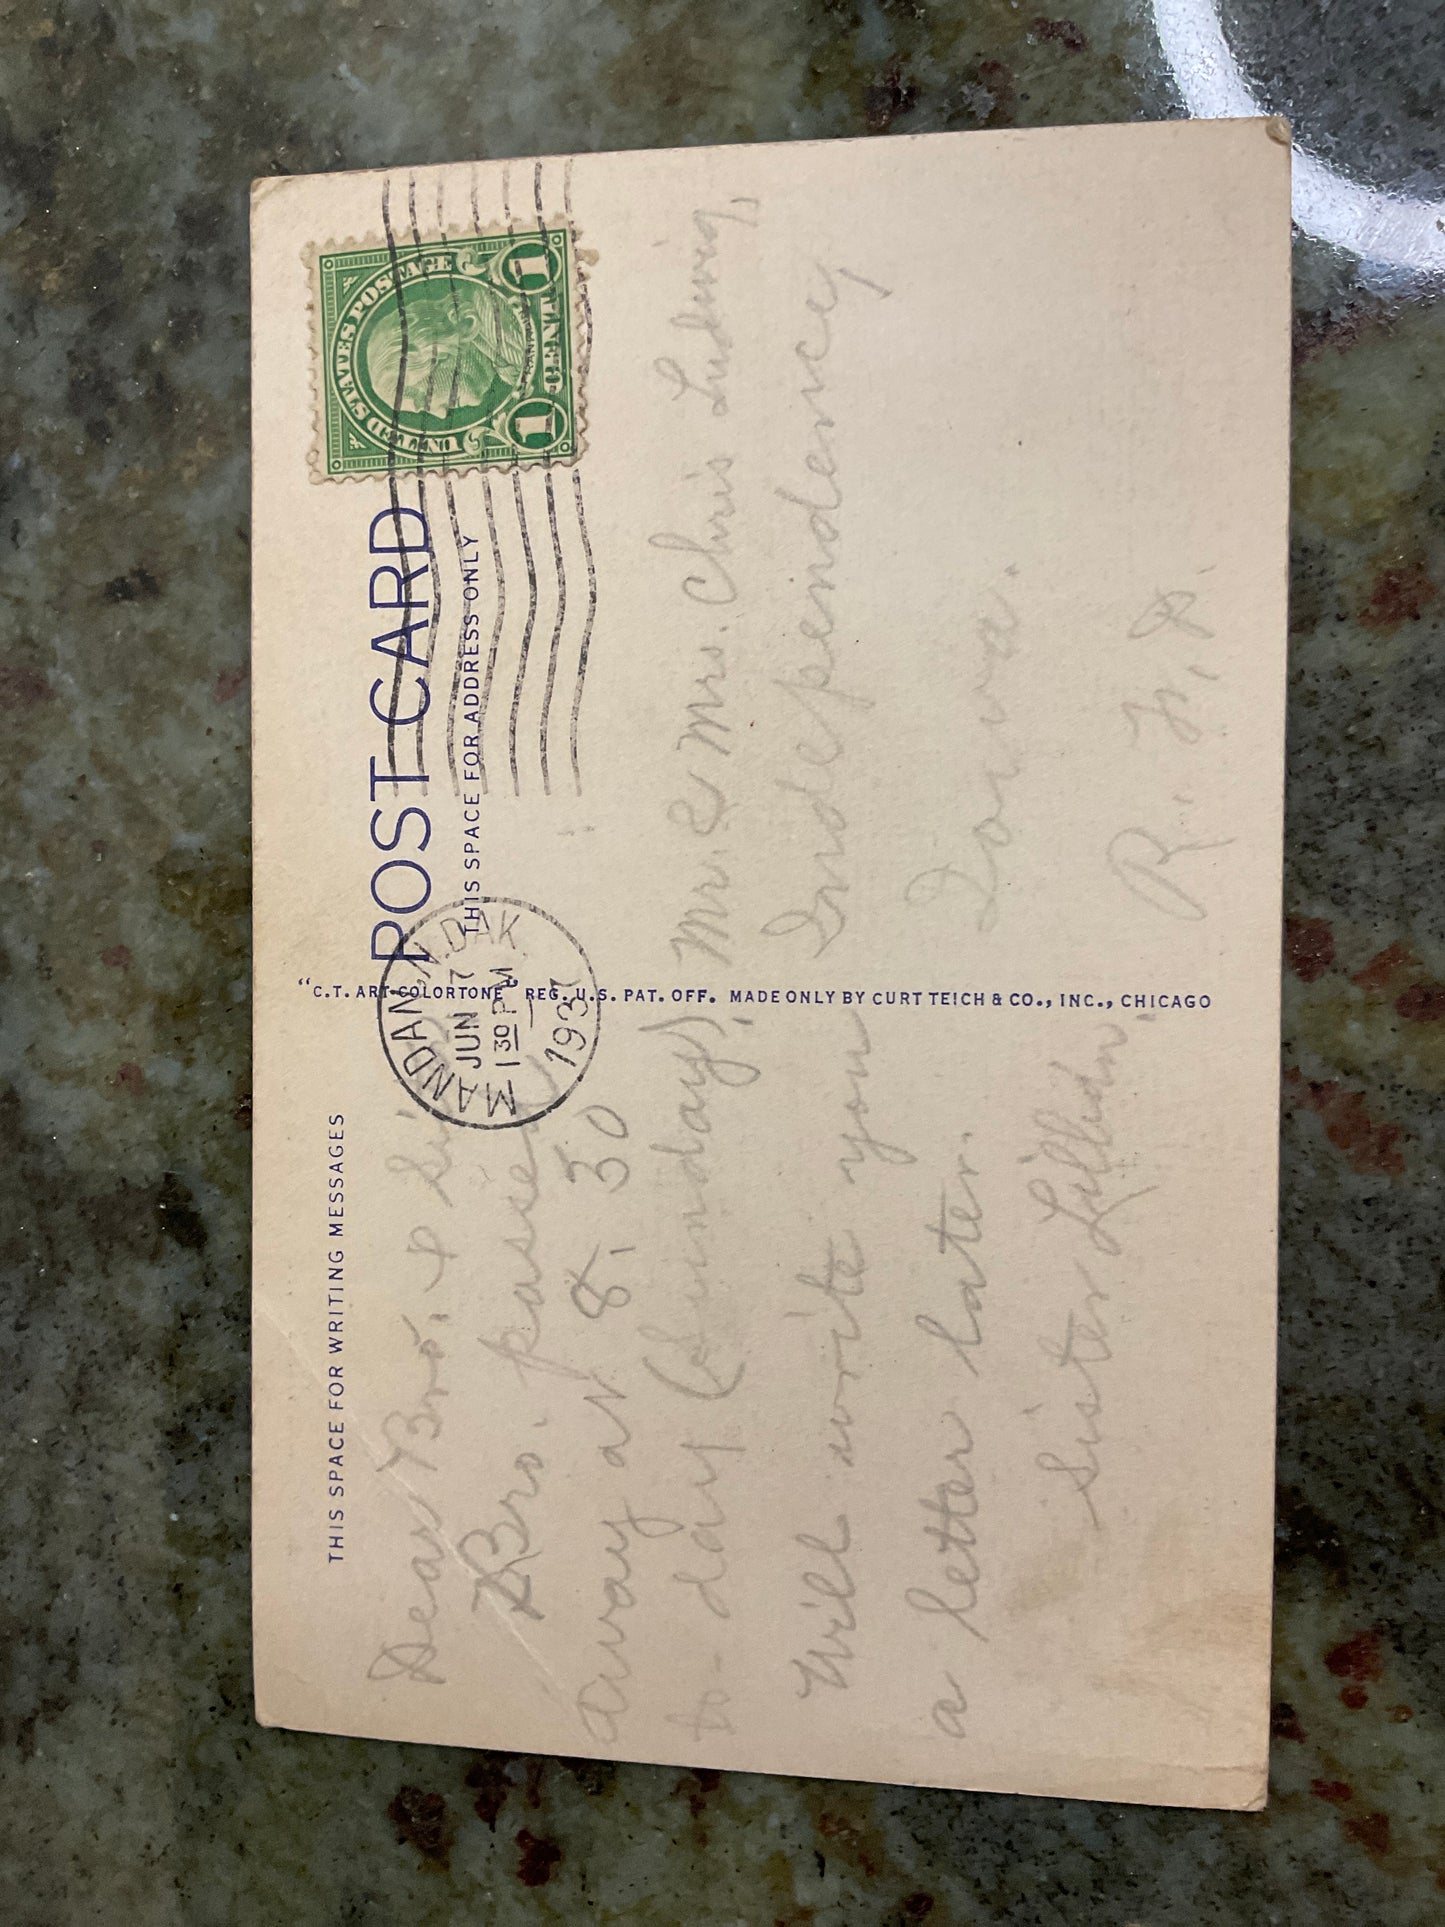 THIS SPACE FOR WRITING MESSAGES
Dear Bro. & Sis.
Bro. passed
away at 8.30
to-day (Sunday).
Will write you
a letter later.
Sister Lillian.
"C.T. ART-COLORTONE" REG. U.S. PAT. OFF. MADE ONLY BY CURT TEICH & CO., INC., CHICAGO
POST CARD
THIS SPACE FOR ADDRESS ONLY
MANDAN, N. DAK
JUN 7
1 30 PM
1937
UNITED STATES POSTAGE
FRANKLIN
1 CENT 1
Mr. & Mrs. Chris Ludwig,
Independence,
Iowa.
R. F. D.